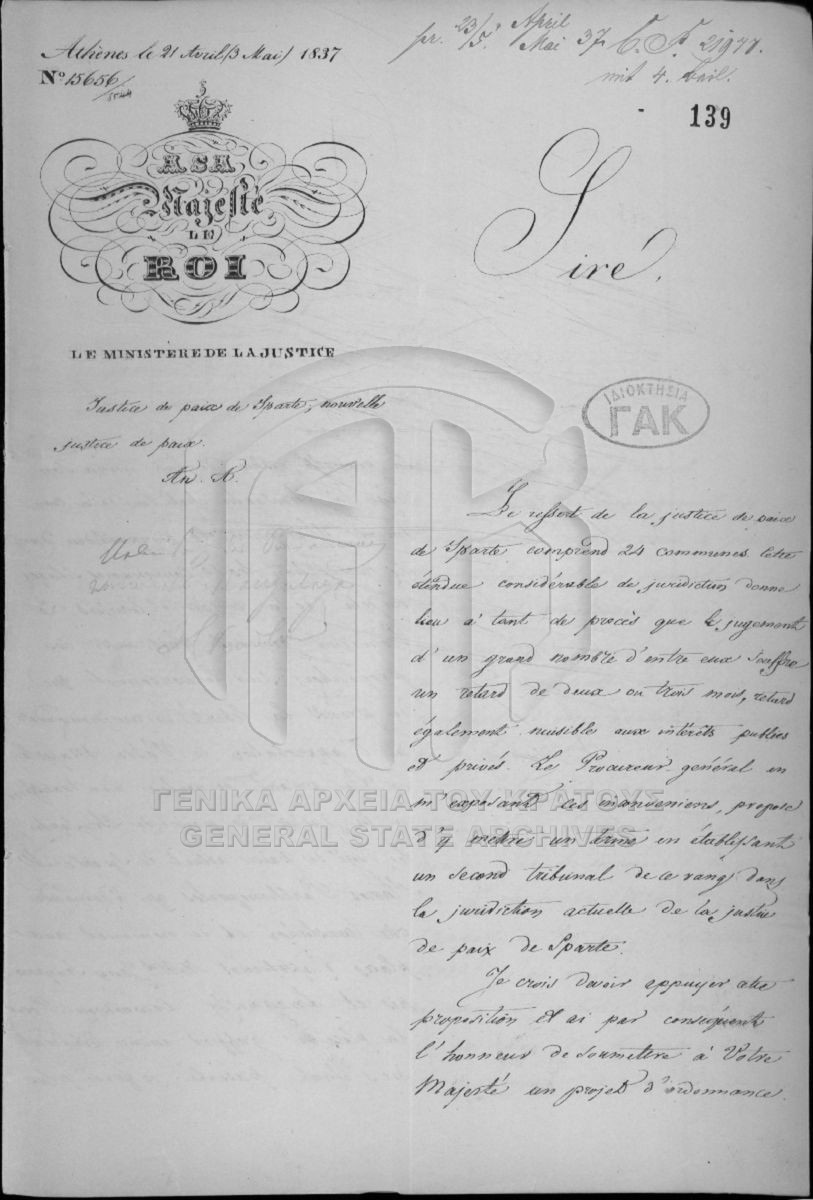 Athènes le 21 Avril (3 Mai) 1837
Nº 15656
pr. 23/5. April Mai 37.
mit 4. Beil.
139
A SA
Majesté
LE
ROI
LE MINISTÈRE DE LA JUSTICE
Siré,
Justice de paix de Sparte, nouvelle
justice de paix.
An. A.
ΙΔΙΟΚΤΗΣΙΑ
ΓΑΚ
Le ressort de la justice de paix
de Sparte comprend 24 communes. Cette
étendue considérable de juridiction donne
lieu à tant de procès que le jugement
d'un grand nombre d'entre eux souffre
un retard de deux ou trois mois, retard
également nuisible aux intérêts publics
et privés. Le Procureur général en
m'exposant ces inconveniens, propose
d'y mettre un terme en établissant
un second tribunal de ce rang dans
la juridiction actuelle de la justice
de paix de Sparte.
Je crois devoir appuyer cette
proposition et ai par conséquent
l'honneur de soumettre à Votre
Majesté un projet d'ordonnance.
ΓΕΝΙΚΑ ΑΡΧΕΙΑ ΤΟΥ ΚΡΑΤΟΥΣ
GENERAL STATE ARCHIVES